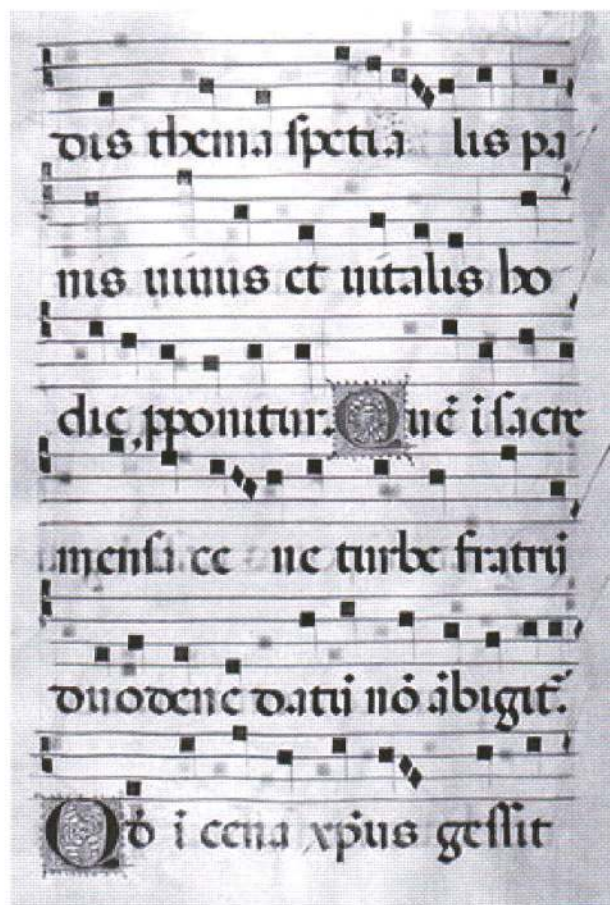 dis thema spetia lis pa
nis uiuus et uitalis ho
die ꝓponitur. Quē ī sacre
mensa ce ne turbe fratrū
duodene datū nō ābigit᷑.
Qḋ ī cena xp̄us gessit